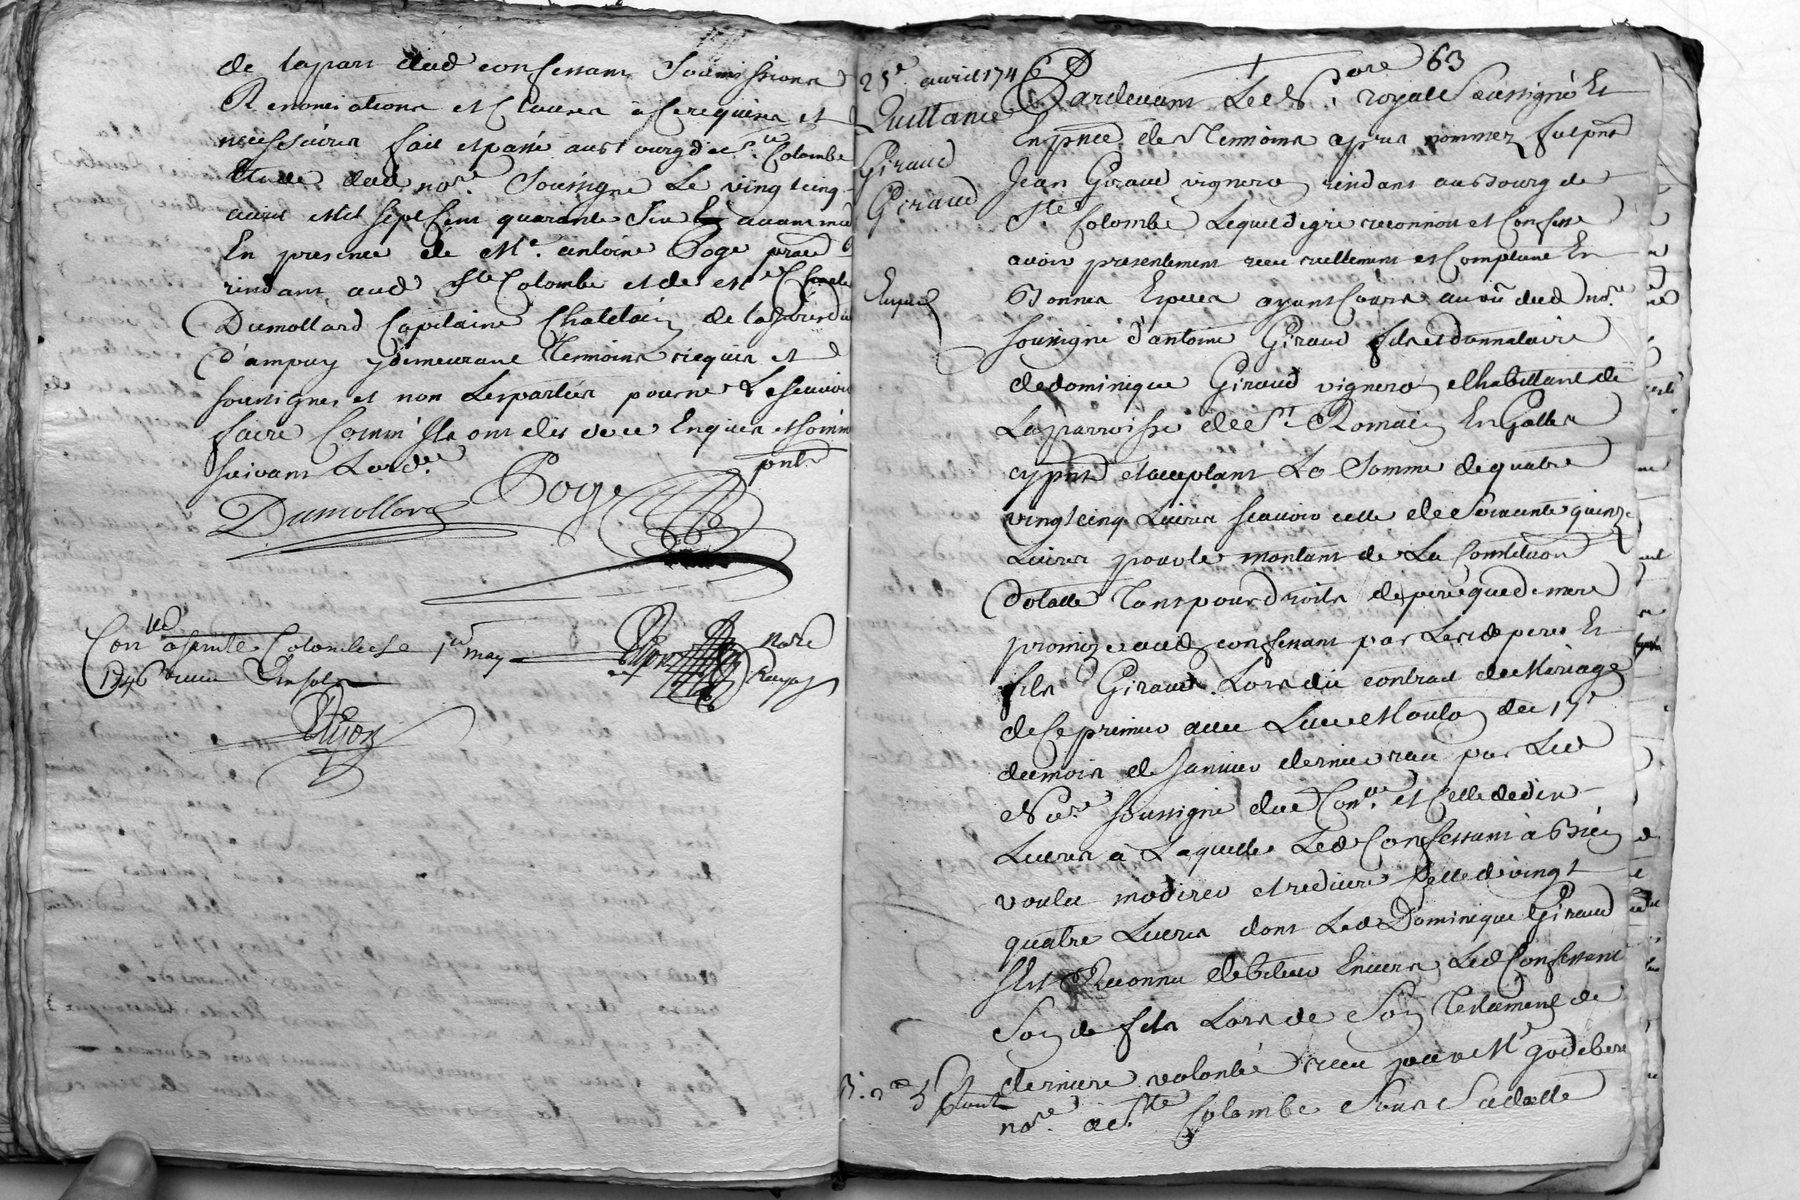 de la part dud confessant soumissions
Renonciations et Clauses a ce requises et
necessaires fait et passé au bourg de Ste Colombe
Etude dud nore soussigné Le vingt cinq
avril mil sept cent quarante six avant midi
En presence de Me antoine Boge
residant aud Ste Colombe et de Me
Dumollard Capitaine Chatelain de la
d'ampuy y demeurant temoins requis et
soussignes et non Les parties pour ne Le scavoir
faire Comm Ils ont dit de ce Enquis et somm
suivant Lorde
Dumollard Boge
Conlle a sainte Colombe Le 1er may
1746 Douze sols
Nore
Royal
63
25e avril 1746
Quittance
Giraud
Giraud
Expedie
Pardevant Le Nore royal Soussigné Et
En pnce des Temoins apres nommez fut pnt
Jean Giraud vigneron residant au Bourg de
Ste Colombe Lequel de gré reconnoit et Confesse
avoir presentement receu reellement et Comptant En
Bonnes Especes ayant Cours au vu dud nore
soussigné d'antoine Giraud fils et donnataire
de dominique Giraud vigneron et habittant de
La parroisse de St Romain En Galles
cy pnt et acceptant La Somme de quatre
vingt cinq Livres scavoir celle de Soixante quinze
Livres pour le montant de La Constitution
Dotalle Tant pour Droits de pere que de mere
promize aud confessant par Lesd pere Et
fils Giraud Lors du contrat de Mariage
de Ce premier avec Lucie Moulon du 17e
du mois de Janvier dernier receu par Led
Nore soussigné due Conlle et Celle de dix
Livres à Laquelle Led Confessant à Bien
voulu moderer et reduire Celle de vingt
quatre Livres dont Led Dominique Giraud
s'Est Reconnu debiteur Envers Led Confessant
Son d fils Lors de Son Testament de
derniere volonté receu par Me godebert
nore a Ste Colombe Sous Sa datte